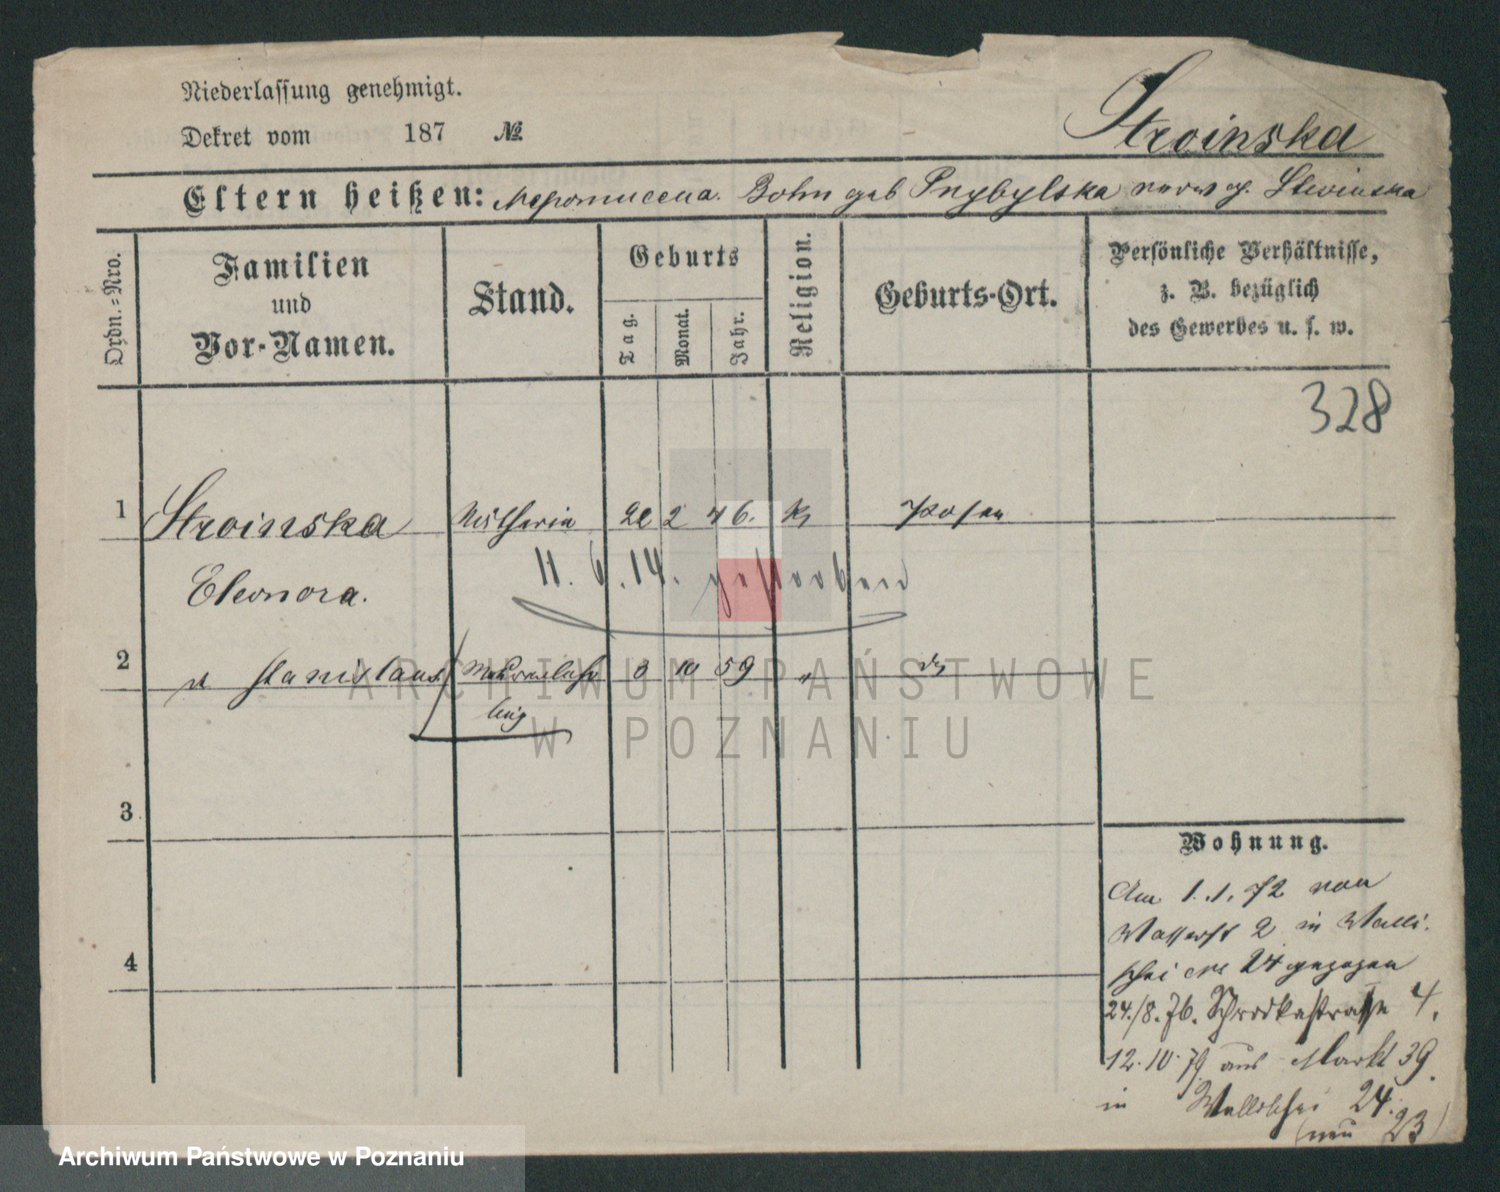 Niederlassung genehmigt.
Dekret vom 187 №
Stroinska
Eltern heißen: Bohn geb Przybylska
Ordn.-Nro.
Familien
und
Vor-Namen.
Stand.
Geburts
Tag.
Monat.
Jahr.
Religion.
Geburts-Ort.
Persönliche Verhältnisse,
z. B. bezüglich
des Gewerbes u. s. w.
328
1 Stroinska 2 46. k Posen
11. 6. 14. gestorben
Eleonora.
2 Stanislaus 3 10 59 "
3
4
Wohnung.
Am 1.1.72 von
Wasserstr 2 in Walli-
schei No 24 gezogen
24./8.76. Schrodkastrasse 4.
12.10.79 aus Markt 39
in Wallischei 24.
(neu 23)
ARCHIWUM PAŃSTWOWE
W POZNANIU
Archiwum Państwowe w Poznaniu